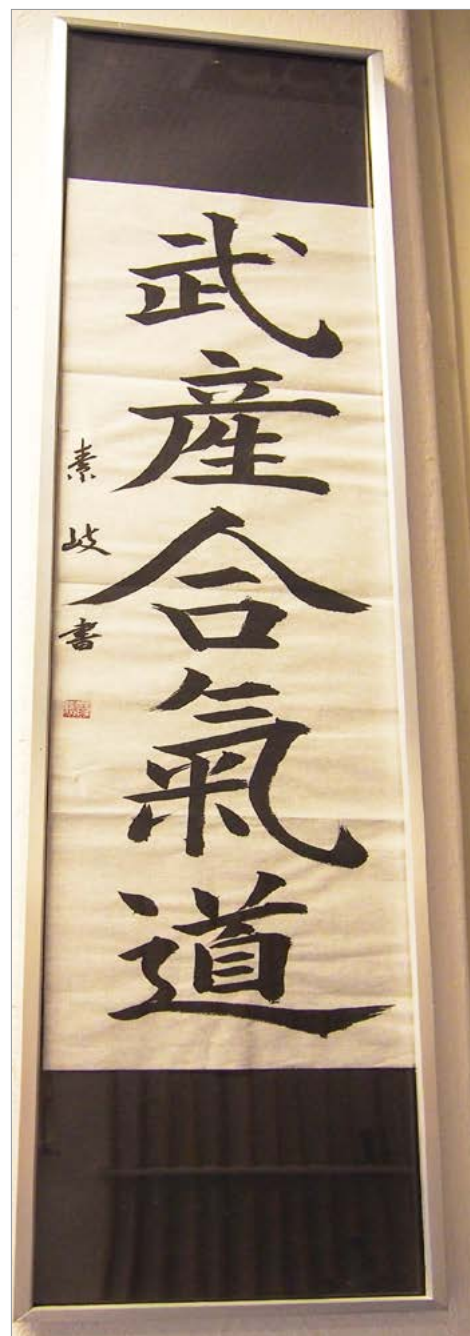 武産合氣道
素岐書